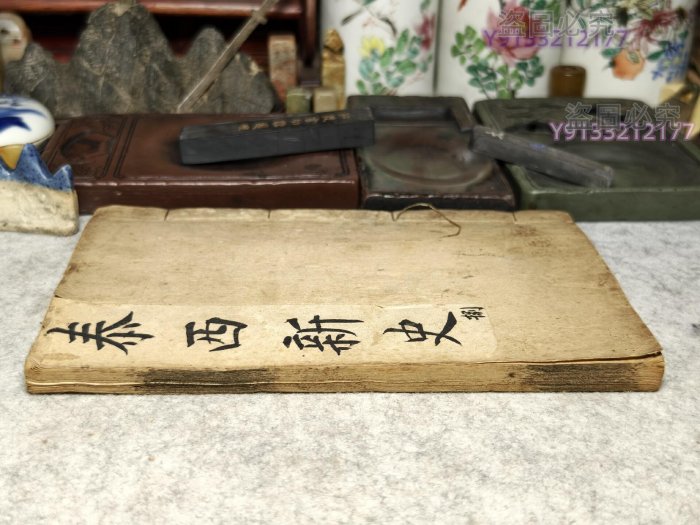 盗图必究
Y9135212177
盗图必究
Y9135212177
泰西新史